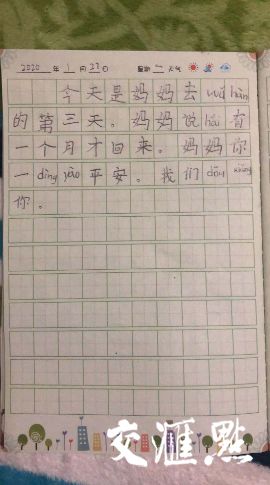 2020 年 1 月 27 日 星期 一 天气
今天是妈妈去 wǔ hàn
的第三天。妈妈说 hái 有
一个月才回来。妈妈你
一 dìng yào 平安。我们 dōu xiǎng
你。
交汇点